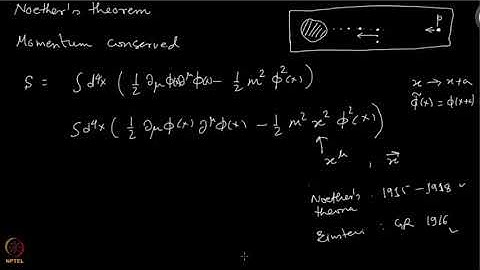 Noether's theorem
Momentum conserved
S = ∫d⁴x ( ½ ∂μφ(x)∂^μφ(x) − ½ m² φ²(x) )
∫d⁴x ( ½ ∂μφ(x) ∂^μφ(x) − ½ m² x² φ²(x) )
↑
x^μ , x⃗
p
x → x+a
φ̃(x) = φ(x+a)
Noether's theorem : 1915 – 1918 ✓
Einstein : GR 1916 ✓
NPTEL